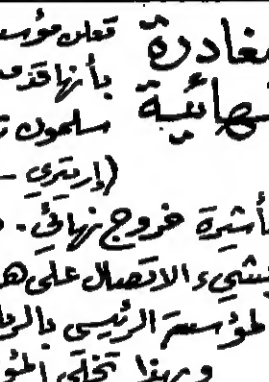 مغادرة
نهائية
تعلن مؤسسـ
بأنها قد
سلمون
(إريتري –
تأشيرة خروج نهائي.
بشيء الاتصال على هـ
المؤسسة الرئيسي بالريا
وبهذا تخلي المؤ